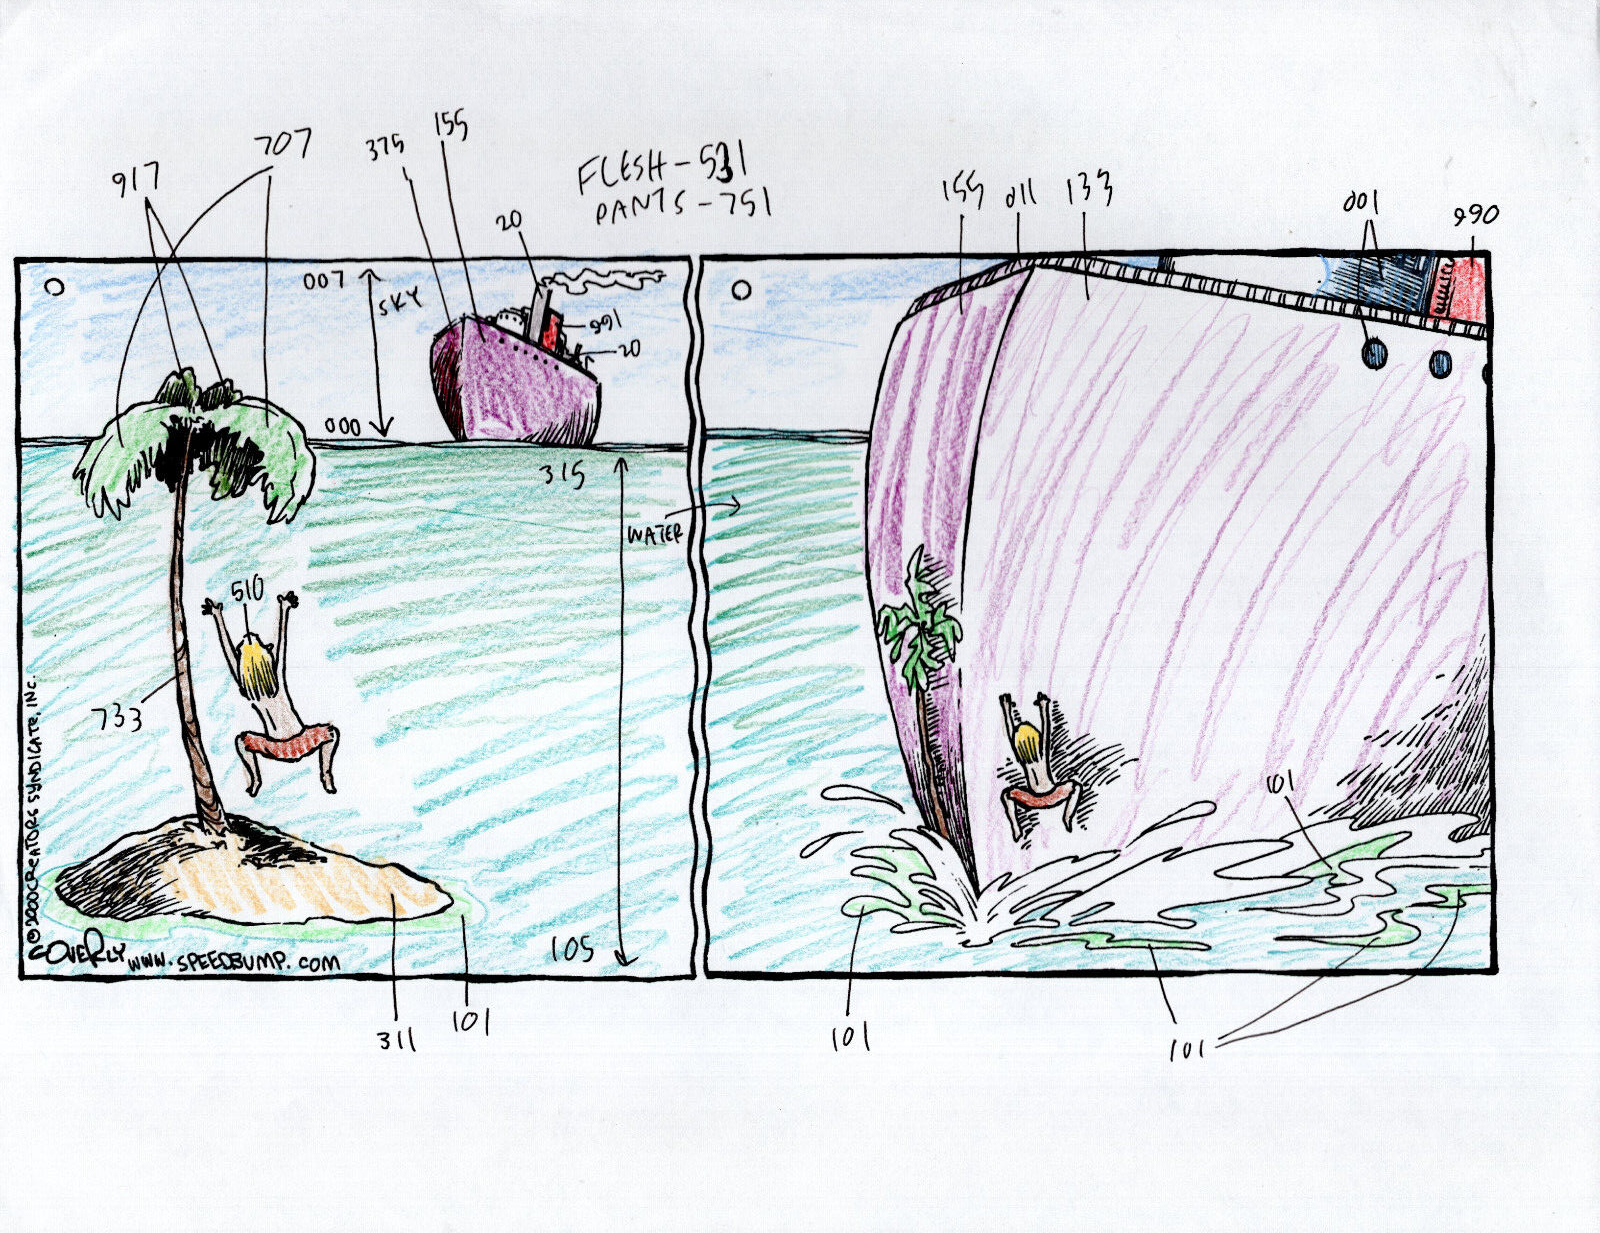 917
707
375
155
FLESH - 531
PANTS - 751
20
007
SKY
000
991
20
315
WATER
510
733
105
©2000 CREATORS SYNDICATE, INC.
COVERLY
WWW.SPEEDBUMP.COM
311
101
155
011
133
001
990
101
101
101